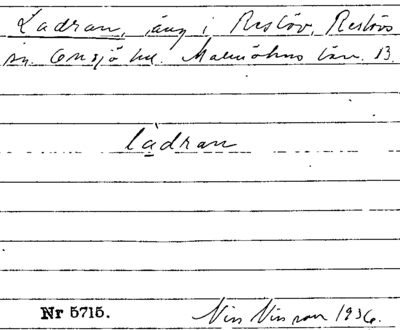 Ladran, äng i Restöv, Restövs
sn. Onsjö hd. Malmöhus län. 13.
làdran
Nr 5715. Nils Nilsson 1936.